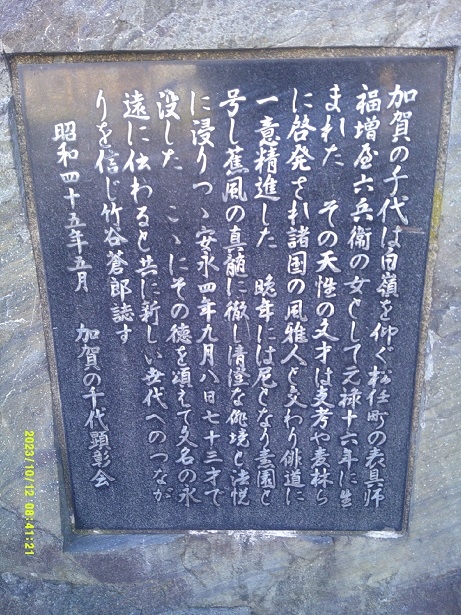 加賀の千代は白嶺を仰ぐ松任町の表具師
福増屋六兵衛の女として元禄十六年に生
まれた その天性の文才は支考や麦林ら
に啓発され諸国の風雅人と交わり俳道に
一意精進した 晩年には尼となり素園と
号し蕉風の真髄に徹し清澄な俳境と法悦
に浸りつゝ安永四年九月八日七十三才で
没した こゝにその徳を頌えて文名の永
遠に伝わると共に新しい世代へのつなが
りを信じ竹谷蒼郎誌す
昭和四十五年五月 加賀の千代顕彰会
2023/10/12 08:41:21